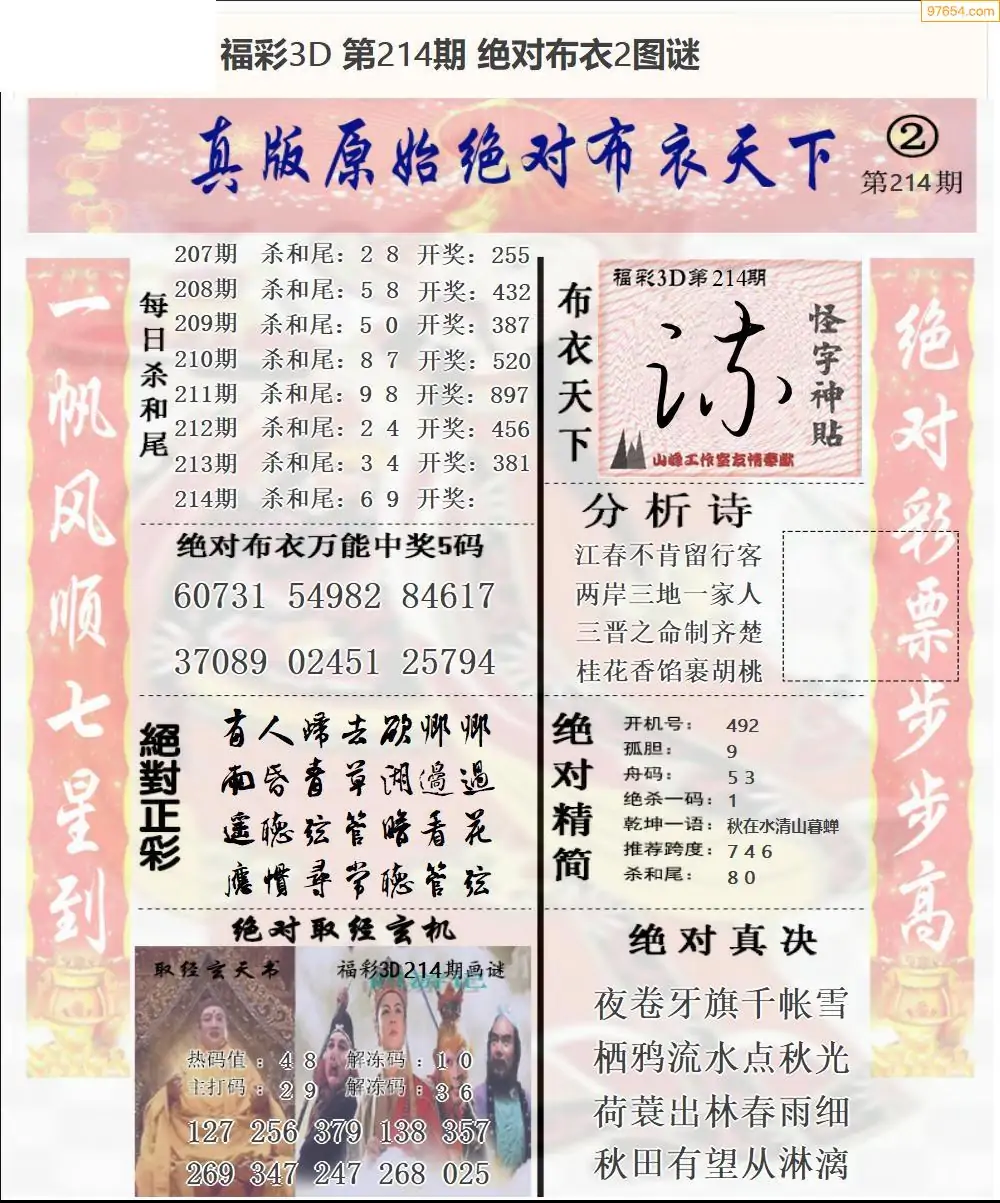 97654.com
福彩3D 第214期 绝对布衣2图谜
真版原始绝对布衣天下
②
第214期
一帆风顺七星到
每日杀和尾
207期 杀和尾：2 8 开奖：255
208期 杀和尾：5 8 开奖：432
209期 杀和尾：5 0 开奖：387
210期 杀和尾：8 7 开奖：520
211期 杀和尾：9 8 开奖：897
212期 杀和尾：2 4 开奖：456
213期 杀和尾：3 4 开奖：381
214期 杀和尾：6 9 开奖：
绝对布衣万能中奖5码
60731 54982 84617
37089 02451 25794
絕對正彩
有人歸去欲卿卿
南昏青草湖邊過
遥聴弦管暗看花
應慣尋常聴管弦
绝对取经玄机
取经玄天书
福彩3D214期画谜
热码值：4 8 解冻码：1 0
主打码：2 9 解冻码：3 6
127 256 379 138 357
269 347 247 268 025
布衣天下
福彩3D第214期
怪字神贴
山峰工作室友情奉献
分析诗
江春不肯留行客
两岸三地一家人
三晋之命制齐楚
桂花香馅裹胡桃
绝对精简
开机号：492
孤胆：9
舟码：5 3
绝杀一码：1
乾坤一语：秋在水清山暮蝉
推荐跨度：7 4 6
杀和尾：8 0
绝对真决
夜卷牙旗千帐雪
栖鸦流水点秋光
荷蓑出林春雨细
秋田有望从淋漓
绝对彩票步步高